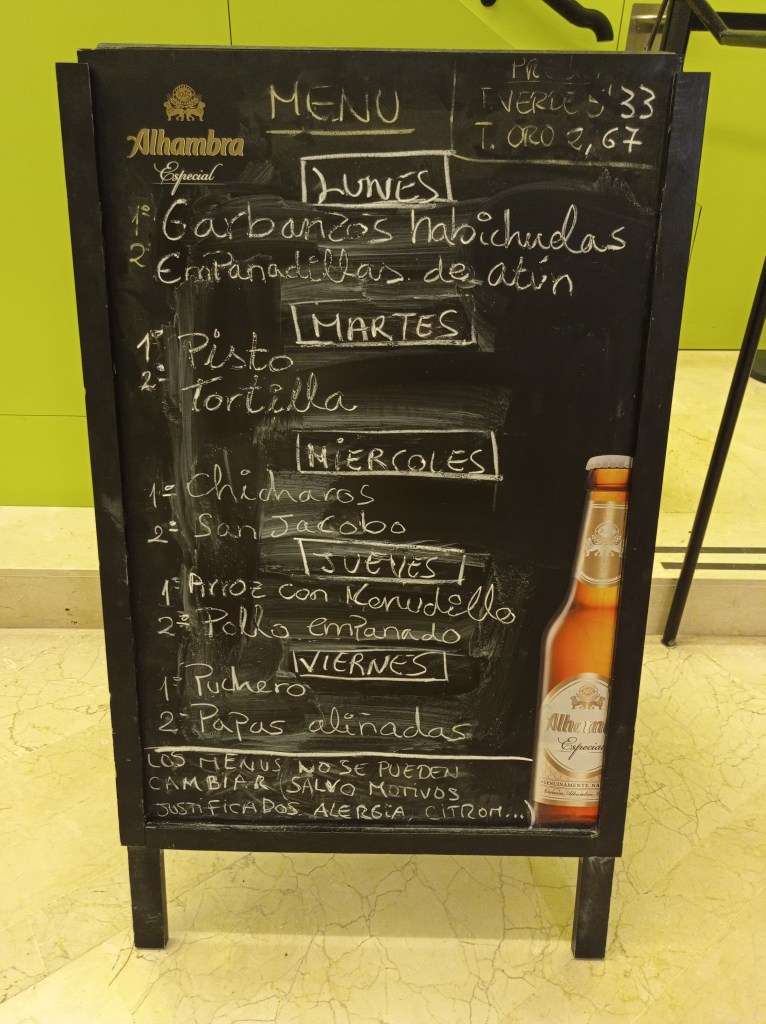 Alhambra
Especial
MENU
T. VERDE 5'33
T. ORO 2,67
LUNES
1º Garbanzos habichuelas
2º Empanadillas de atún
MARTES
1º Pisto
2º Tortilla
MIERCOLES
1º Chicharos
2º San Jacobo
JUEVES
1º Arroz con Menudillo
2º Pollo empanado
VIERNES
1º Puchero
2º Papas aliñadas
LOS MENUS NO SE PUEDEN
CAMBIAR (SALVO MOTIVOS
JUSTIFICADOS ALERGIA, CITROM...)
Alhambra
Especial